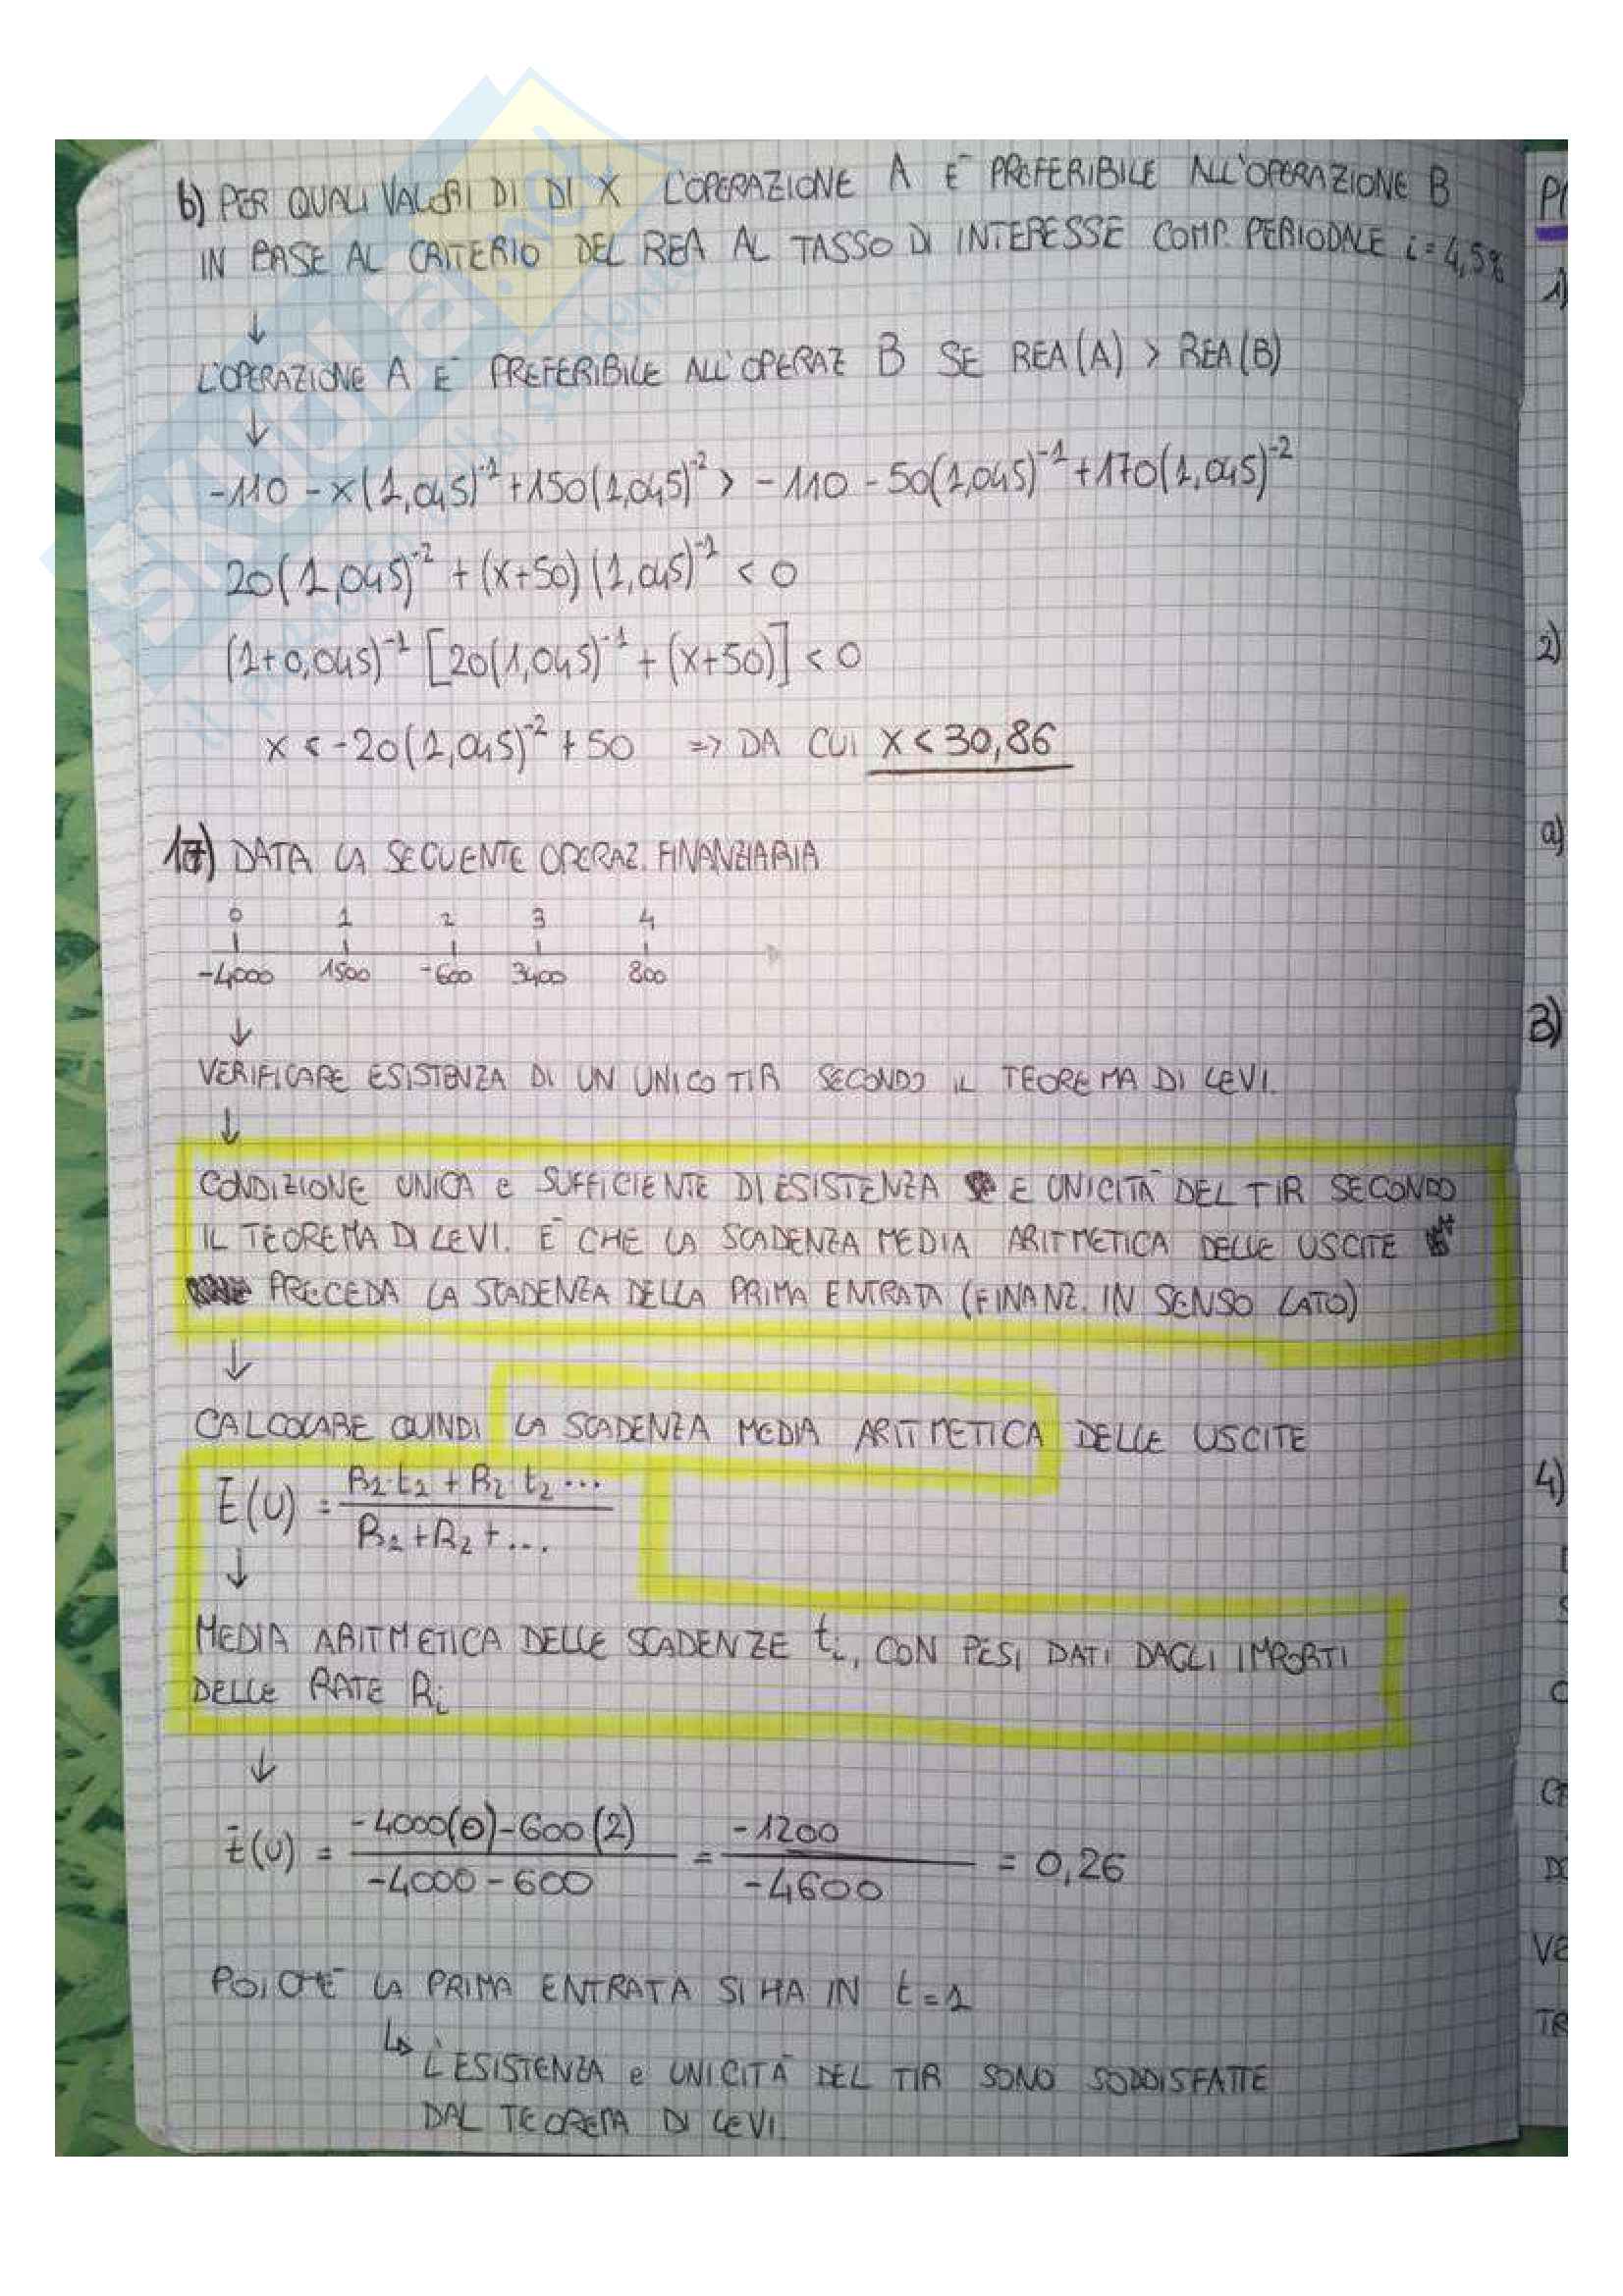 b) PER QUALI VALORI DI DI X L'OPERAZIONE A E' PREFERIBILE ALL'OPERAZIONE B
IN BASE AL CRITERIO DEL REA AL TASSO DI INTERESSE COMP. PERIODALE i=4,5%
↓
L'OPERAZIONE A E' PREFERIBILE ALL'OPERAZ B SE REA(A) > REA(B)
↓
-110 - x(1,045)^-1 + 150(1,045)^-2 > -110 - 50(1,045)^-1 + 170(1,045)^-2
20(1,045)^-2 + (x+50)(1,045)^-1 < 0
(1+0,045)^-1 [20(1,045)^-1 + (x+50)] < 0
x < -20(1,045)^-2 + 50 => DA CUI X < 30,86
17) DATA LA SEGUENTE OPERAZ. FINANZIARIA
0 1 2 3 4
-4000 1500 -600 3400 800
↓
VERIFICARE ESISTENZA DI UN UNICO TIR SECONDO IL TEOREMA DI LEVI.
↓
CONDIZIONE UNICA e SUFFICIENTE DI ESISTENZA E UNICITA' DEL TIR SECONDO
IL TEOREMA DI LEVI. E' CHE LA SCADENZA MEDIA ARITMETICA DELLE USCITE
PRECEDA LA SCADENZA DELLA PRIMA ENTRATA (FINANZ. IN SENSO LATO)
↓
CALCOLARE QUINDI LA SCADENZA MEDIA ARITMETICA DELLE USCITE
t̄(U) = R1·t1 + R2·t2 ... / R1 + R2 + ...
↓
MEDIA ARITMETICA DELLE SCADENZE ti, CON PESI DATI DAGLI IMPORTI
DELLE RATE Ri
↓
t̄(U) = -4000(0)-600(2) / -4000-600 = -1200 / -4600 = 0,26
POICHE' LA PRIMA ENTRATA SI HA IN t=1
↳ L'ESISTENZA e UNICITA' DEL TIR SONO SODDISFATTE
DAL TEOREMA DI LEVI.
1)
2)
a)
3)
4)
SKUOLA.net